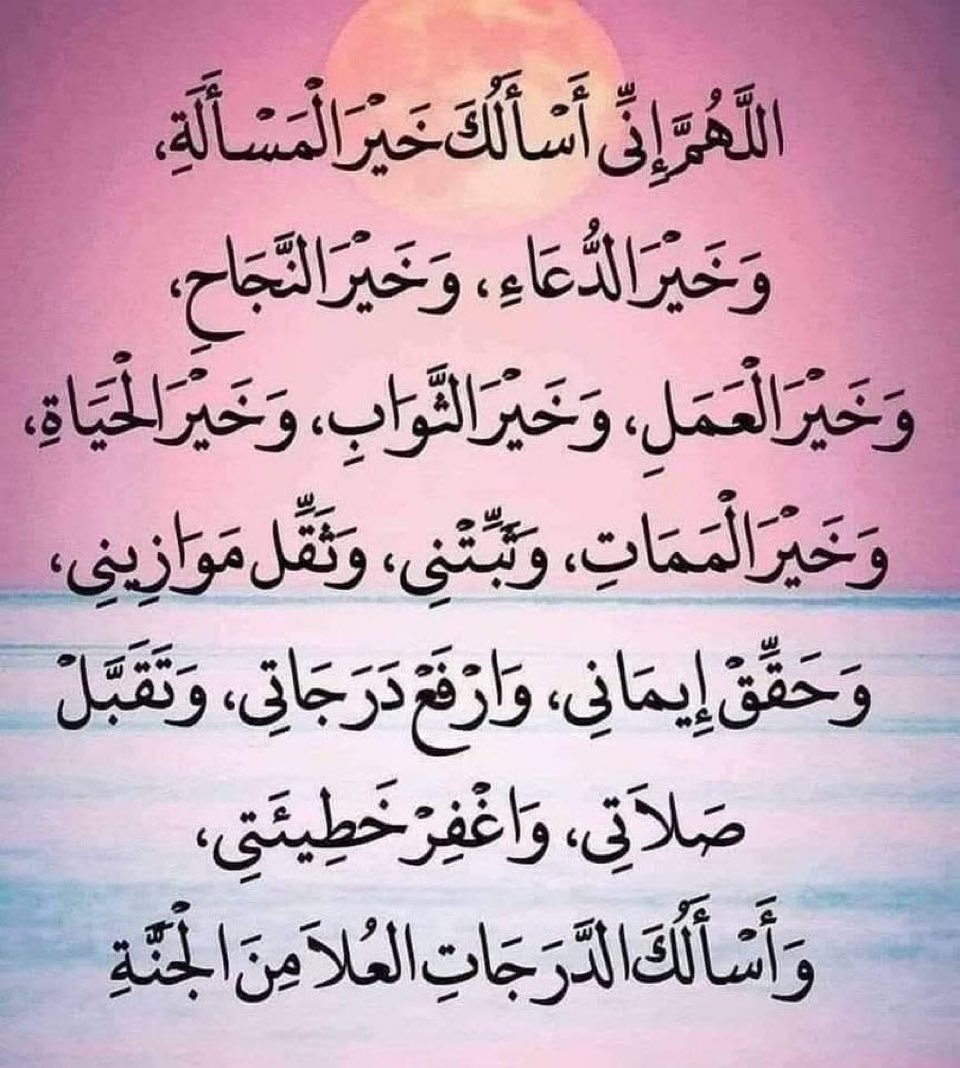 اللَّهُمَّ إِنِّي أَسْأَلُكَ خَيْرَ الْمَسْأَلَةِ،
وَخَيْرَ الدُّعَاءِ، وَخَيْرَ النَّجَاحِ،
وَخَيْرَ الْعَمَلِ، وَخَيْرَ الثَّوَابِ، وَخَيْرَ الْحَيَاةِ،
وَخَيْرَ الْمَمَاتِ، وَثَبِّتْنِي، وَثَقِّل مَوَازِينِي،
وَحَقِّقْ إِيمَانِي، وَارْفَعْ دَرَجَاتِي، وَتَقَبَّلْ
صَلاَتِي، وَاغْفِرْ خَطِيئَتِي،
وَأَسْأَلُكَ الدَّرَجَاتِ العُلاَ مِنَ الْجَنَّةِ